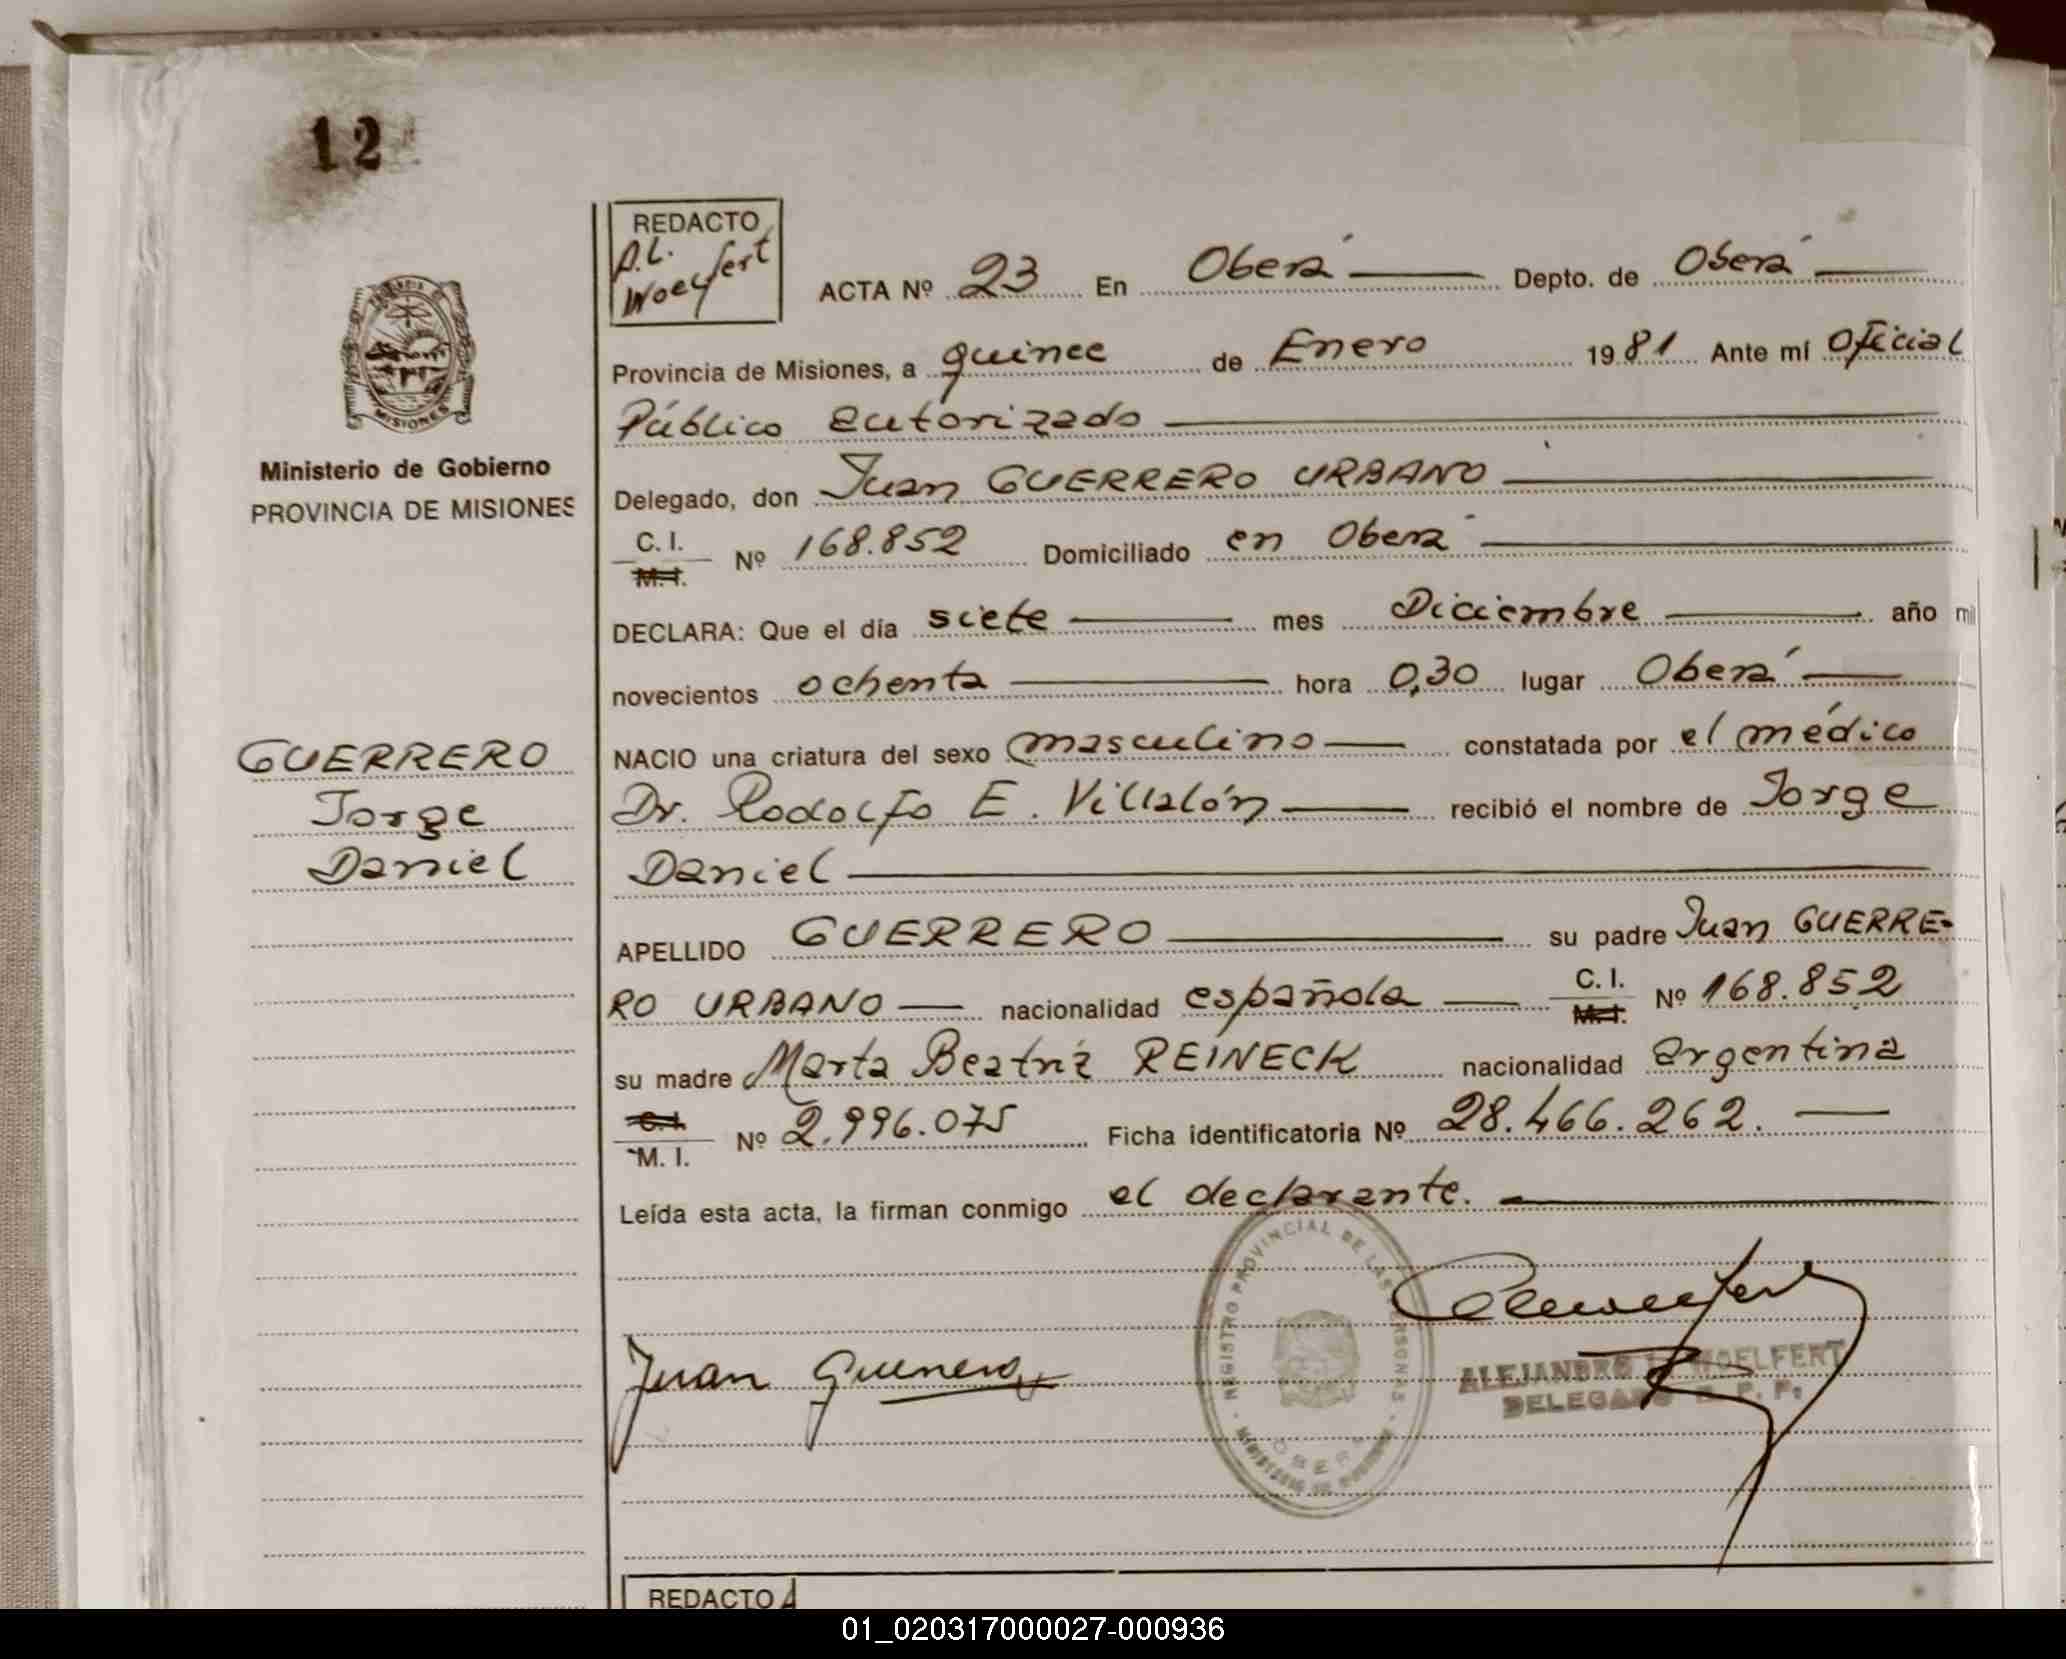 12
REDACTO
A.L.
Woelfert
ACTA Nº 23 En Oberá Depto. de Oberá
Provincia de Misiones, a quince de Enero 1981 Ante mí Oficial
Público autorizado
Delegado, don Juan GUERRERO URBANO
C. I.
M. I. Nº 168.852 Domiciliado en Oberá
DECLARA: Que el día siete mes Diciembre año mil
novecientos ochenta hora 0,30 lugar Oberá
NACIO una criatura del sexo masculino constatada por el médico
Dr. Rodolfo E. Villalón recibió el nombre de Jorge
Daniel
APELLIDO GUERRERO su padre Juan GUERRE-
RO URBANO nacionalidad española C. I. M. I. Nº 168.852
su madre Marta Beatriz REINECK nacionalidad argentina
C. I.
M. I. Nº 2.996.075 Ficha identificatoria Nº 28.466.262.
Leída esta acta, la firman conmigo el declarante.
Ministerio de Gobierno
PROVINCIA DE MISIONES
MISIONES
GUERRERO
Jorge
Daniel
REGISTRO PROVINCIAL DE LAS PERSONAS
OBERA
Juan Guerrero
ALEJANDRO L. WOELFERT
DELEGADO R. P. P.
REDACTO
01_020317000027-000936